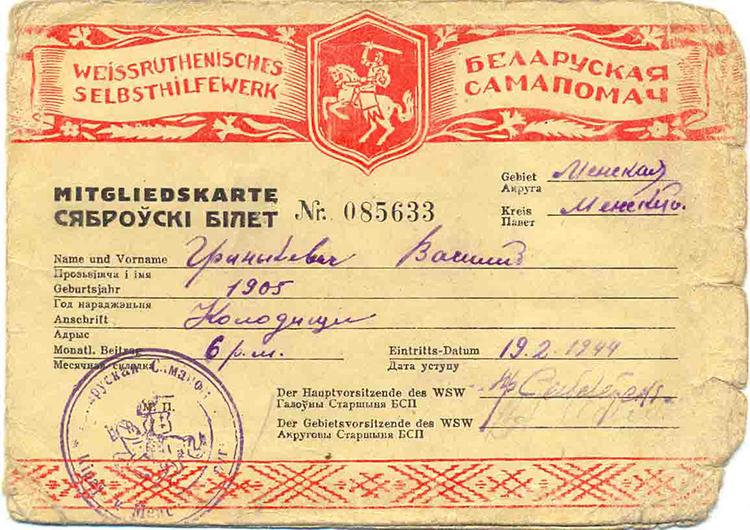 WEISSRUTHENISCHES
SELBSTHILFEWERK
БЕЛАРУСКАЯ
САМАПОМАЧ
Gebiet Менская
Акруга
MITGLIEDSKARTE
СЯБРОЎСКІ БІЛЕТ Nr. 085633
Kreis
Павет
Name und Vorname
Прозьвішча і імя
Geburtsjahr 1905
Год нараджэньня
Anschrift Колодищи
Адрыс
Monatl. Beitrag 6 р.м. Eintritts-Datum 19.2.1944
Месячная складка Дата уступу
Der Hauptvorsitzende des WSW
Галоўны Старшыня БСП
Der Gebietsvorsitzende des WSW
Акруговы Старшыня БСП